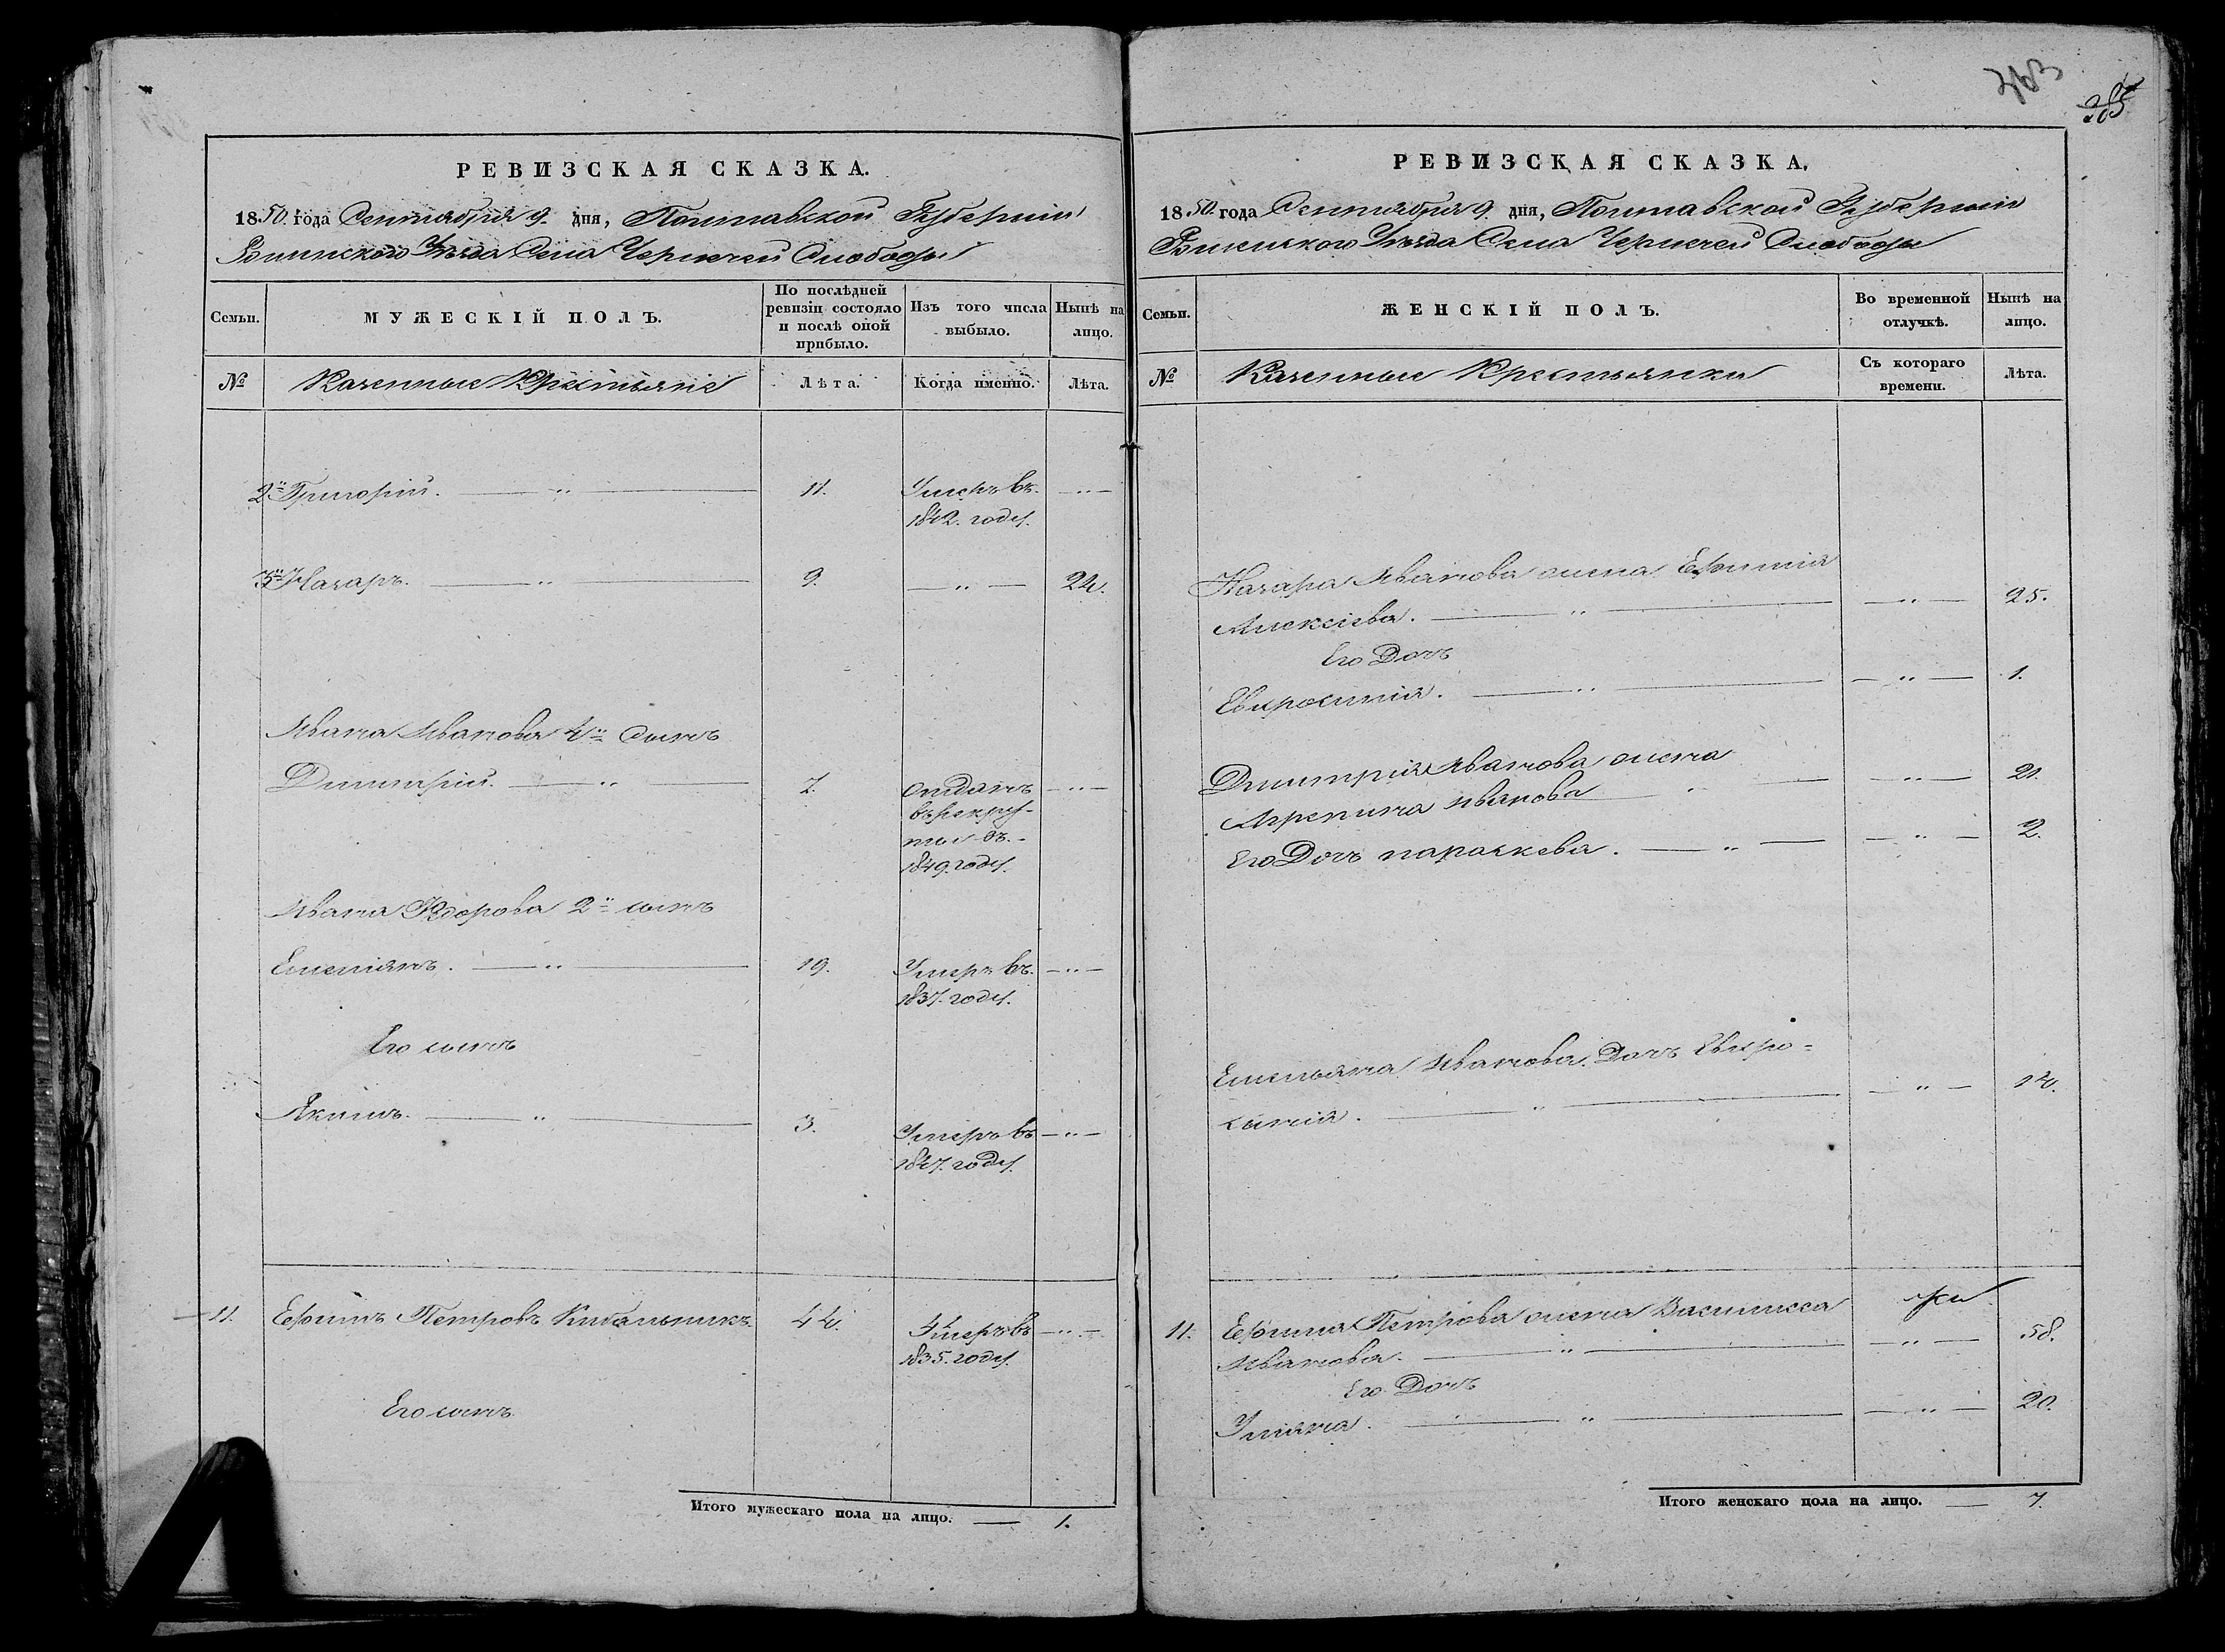 РЕВИЗСКАЯ СКАЗКА.
1850. года Сентября 9. дня, Полтавской Губернии
Роминского Уѣзда Села Чернечей Слободы
Семьи.
МУЖЕСКІЙ ПОЛЪ.
По послѣдней ревизіи состояло и послѣ оной прибыло.
Изъ того числа выбыло.
Нынѣ на лицо.
№
Казенные Крестьяне
Лѣта.
Когда именно.
Лѣта.
2й Григорій. — " — 11. Умеръ въ. — " —
1842. году.
3й Назаръ. — " — 9. — " — 24.
Ивана Иванова 4й Сынъ
Димитрій. — " — 7. отданъ — " —
въ рекру-
ты въ.
1849. году.
Ивана Федорова 2й сынъ
Емеліянъ. — " — 19. Умеръ въ. — " —
1837. году.
Его сынъ
Якимъ. — " — 3. Умеръ въ — " —
1847. году.
11. Ефимъ Петровъ Кибальникъ. 44. Умеръ въ — " —
1835. году.
Его сынъ
Итого мужескаго пола на лицо. — 1.
363
285
РЕВИЗСКАЯ СКАЗКА.
1850. года Сентября 9. дня, Полтавской Губернии
Роменского Уѣзда Села Чернечей Слободы
Семьи.
ЖЕНСКІЙ ПОЛЪ.
Во временной отлучкѣ.
Нынѣ на лицо.
№
Казенные Крестьянки
Съ котораго времени.
Лѣта.
Назара Иванова жена Ефимія
Алексіева. — " — — " — 25.
Его Дочь
Евфросинія. — " — — " — 1.
Димитрія Иванова жена
Агрепина Иванова — " — — " — 21.
Его Дочь параскева. — " — — " — 2.
Емельяна Иванова Дочь Евфро-
синія. — " — — " — 14.
11. Ефима Петрова жена Василисса
Иванова. — " — — " — 58.
Его Дочь
Уліяна. — " — — " — 20.
Итого женскаго пола на лицо. — 7.